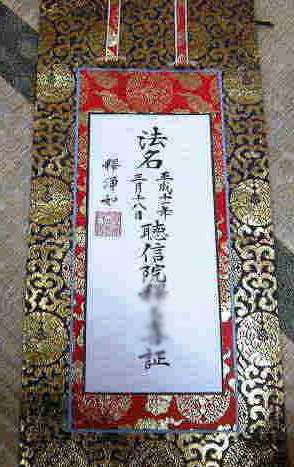 法名
平成十二年
三月十八日
聴信院
証
釋淨如